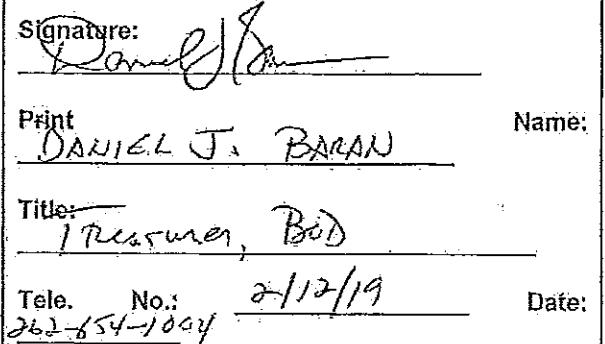 Signature:
Daniel J Baran
Print Name:
DANIEL J. BARAN
Title:
Treasurer, BoD
Tele. No.: 2/12/19 Date:
262-654-1004